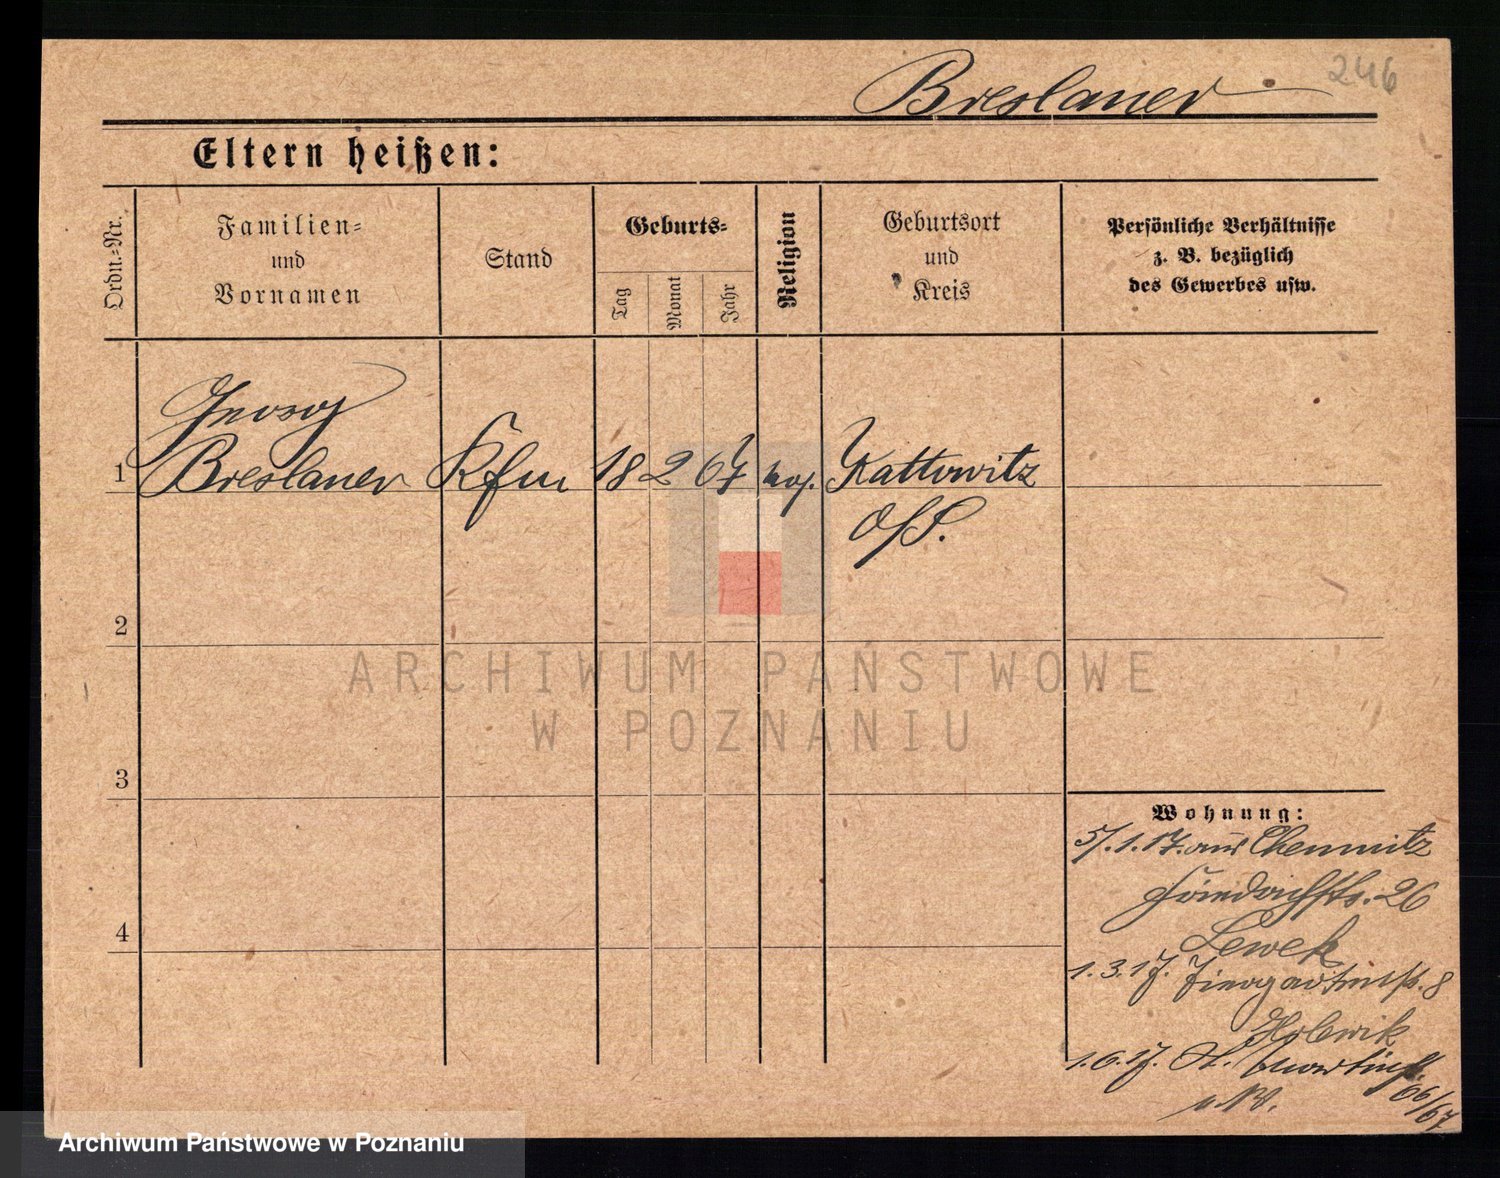 246
Breslauer
Eltern heißen:
Ordn.=Nr.
Familien=
und
Vornamen
Stand
Geburts=
Tag
Monat
Jahr
Religion
Geburtsort
und
Kreis
Persönliche Verhältnisse
z. B. bezüglich
des Gewerbes usw.
Georg
1 Breslauer Kfm 18 2 67 mos. Kattowitz
O/S.
2
3
4
Wohnung:
5/.1.17. aus Chemnitz
Friedrichstr. 26
Lewek
1.3.17. Tiergartenstr. 8
1.6.17. St. Martinstr.
66/67
ARCHIWUM PAŃSTWOWE
W POZNANIU
Archiwum Państwowe w Poznaniu